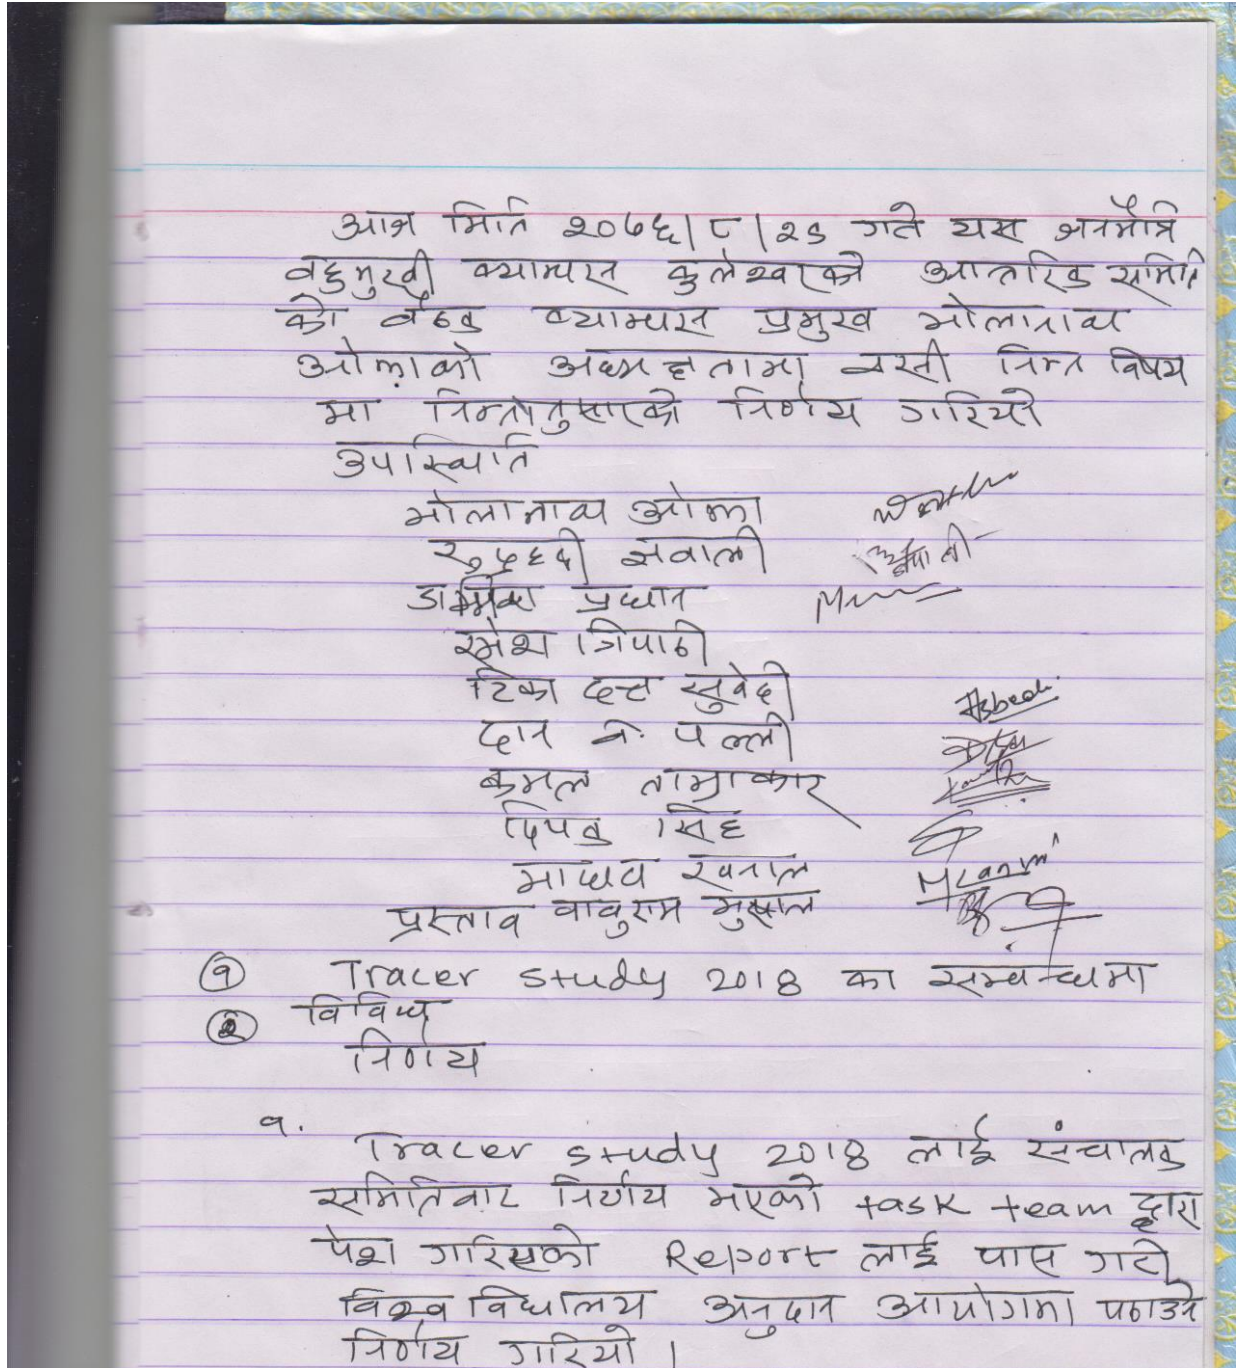 आज मिति २०७६।८।२९ गते यस जनमैत्रि
वहुमुखी क्याम्पस कुलेश्वरको आन्तरिक समिति
को वैठक क्याम्पस प्रमुख भोलानाथ
ओझाको अध्यक्षतामा वसी निम्न विषय
मा निम्नानुसारको निर्णय गरियो
उपस्थिति
भोलानाथ ओझा
ज्ञवाली
प्रधान
रमेश त्रिपाठी
टिका दत्त सुवेदी
दान व. वल्ली
कमल ताम्राकार
दिपक सिंह
माधव खनाल
प्रस्ताव वावुराम भुसाल
१ Tracer study 2018 का सम्वन्धमा
२ विविध
निर्णय
१.
Tracer study 2018 लाई संचालक
समितिवाट निर्णय भएको task team द्वारा
पेश गरिएको Report लाई पास गरी
विश्व विद्यालय अनुदान आयोगमा पठाउने
निर्णय गरियो ।